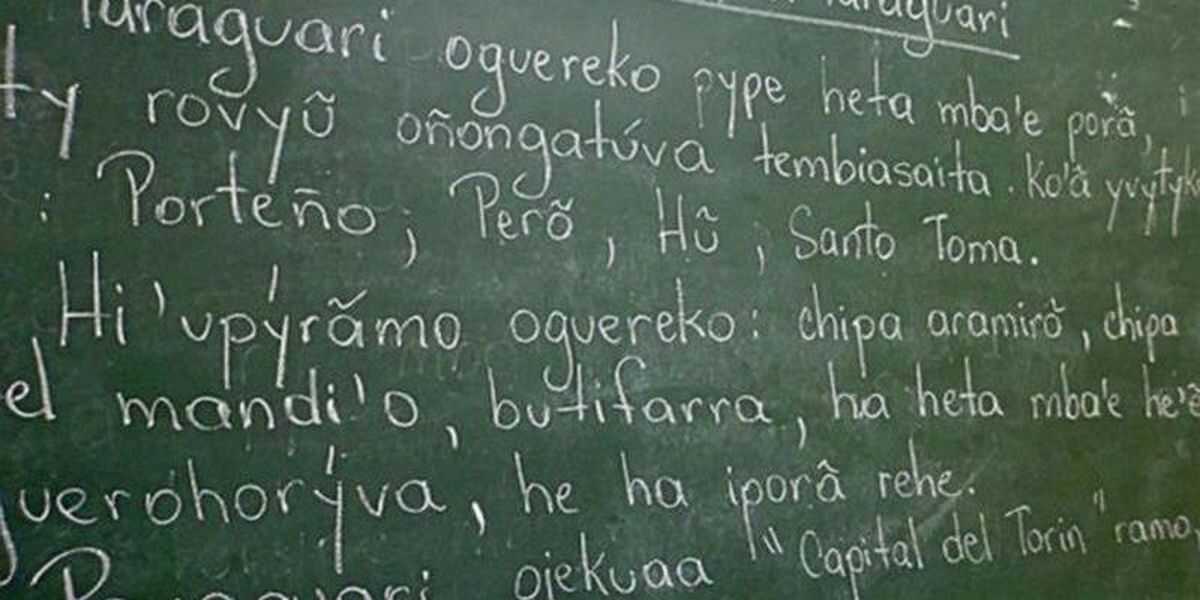 Paraguari
Paraguari oguereko pype heta mba'e porã,
ty rovyũ oñongatúva tembiasaita. Ko'ã yvytyk
: Porteño, Perõ, Hũ, Santo Toma.
Hi'upýrãmo oguereko: chipa aramirõ, chipa
el mandi'o, butifarra, ha heta mba'e he'ẽ
guerohorýva, he ha iporã rehe.
Paraguari ojekuaa "Capital del Torin" ramo